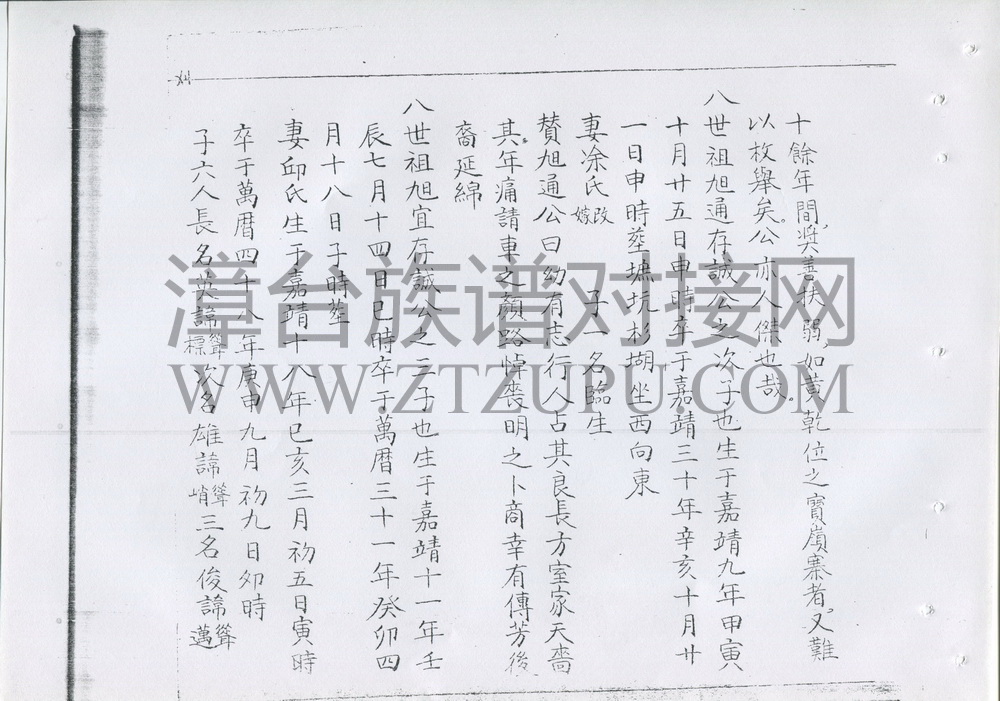 十餘年間,奬善扶弱,如黄乾位之寳嶺寨者,又難
以枚舉矣。公亦人傑也哉。
八世祖旭通存誠公之次子也生于嘉靖九年甲寅
十月廿五日申時卒于嘉靖三十年辛亥十月廿
一日申時塟墟坑杉塘坐西向東
妻凃氏改嫁 子一名臨生
賛旭通公曰幼有志行人占其良長方室家天嗇
其年痛請車之顏路悼喪明之卜商幸有傳芳後
裔延綿
八世祖旭宜存誠公之三子也生于嘉靖十一年壬
辰七月十四日巳時卒于萬曆三十一年癸卯四
月十八日子時塟
妻邱氏生于嘉靖十八年己亥三月初五日寅時
卒于萬曆四十八年庚申九月初九日卯時
子六人長名英諱聳標次名雄諱聳峭三名俊諱聳邁
漳台族谱对接网
WWW.ZTZUPU.COM